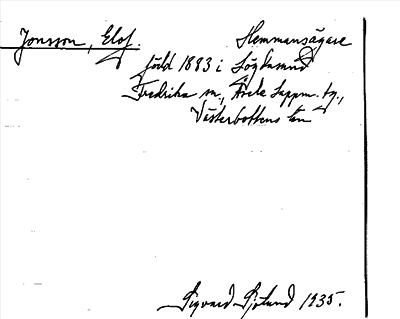 Jonsson, Elof. Hemmansägare
född 1883 i Lögdasund
Fredrika sn., Åsele Lappm. tg.,
Västerbottens län
Sigvard Sjölund 1935.